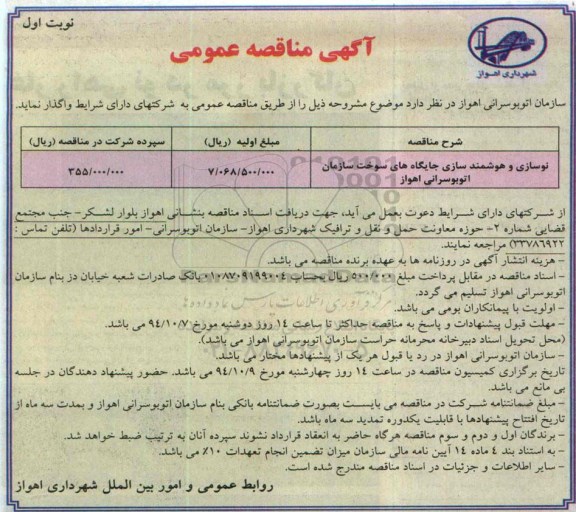 نوبت اول
شهرداری اهواز
آگهی مناقصه عمومی
سازمان اتوبوسرانی اهواز در نظر دارد موضوع مشروحه ذیل را از طریق مناقصه عمومی به شرکتهای دارای شرایط واگذار نماید.
شرح مناقصه	مبلغ اولیه (ریال)	سپرده شرکت در مناقصه (ریال)
نوسازی و هوشمند سازی جایگاه های سوخت سازمان اتوبوسرانی اهواز	۷/۰۶۸/۵۰۰/۰۰۰	۳۵۵/۰۰۰/۰۰۰
از شرکتهای دارای شرایط دعوت بعمل می آید، جهت دریافت اسناد مناقصه بنشانی اهواز بلوار لشکر- جنب مجتمع
قضایی شماره ۲- حوزه معاونت حمل و نقل و ترافیک شهرداری اهواز- سازمان اتوبوسرانی- امور قراردادها (تلفن تماس :
۳۳۷۸۶۹۲۲) مراجعه نمایند.
- هزینه انتشار آگهی در روزنامه ها به عهده برنده مناقصه می باشد.
- اسناد مناقصه در مقابل پرداخت مبلغ ۵۰۰/۰۰۰ ریال بحساب ۰۱۰۸۷۰۹۱۹۹۰۰۴ بانک صادرات شعبه خیابان دز بنام سازمان
اتوبوسرانی اهواز تسلیم می گردد.
- اولویت با پیمانکاران بومی می باشد.
- مهلت قبول پیشنهادات و پاسخ به مناقصه حداکثر تا ساعت ۱۴ روز دوشنبه مورخ ۹۴/۱۰/۷ می باشد.
(محل تحویل اسناد دبیرخانه محرمانه حراست سازمان اتوبوسرانی اهواز می باشد).
- سازمان اتوبوسرانی اهواز در رد یا قبول هر یک از پیشنهادها مختار می باشد.
تاریخ برگزاری کمیسیون مناقصه در ساعت ۱۴ روز چهارشنبه مورخ ۹۴/۱۰/۹ می باشد. حضور پیشنهاد دهندگان در جلسه
بی مانع می باشد.
- مبلغ ضمانتنامه شرکت در مناقصه می بایست بصورت ضمانتنامه بانکی بنام سازمان اتوبوسرانی اهواز و بمدت سه ماه از
تاریخ افتتاح پیشنهادها با قابلیت یکدوره تمدید سه ماه باشد.
- برندگان اول و دوم و سوم مناقصه هرگاه حاضر به انعقاد قرارداد نشوند سپرده آنان به ترتیب ضبط خواهد شد.
- به استناد بند ٤ ماده ۱٤ آیین نامه مالی سازمان میزان تضمین انجام تعهدات ۱۰٪ می باشد.
- سایر اطلاعات و جزئیات در اسناد مناقصه مندرج شده است.
روابط عمومی و امور بین الملل شهرداری اهواز